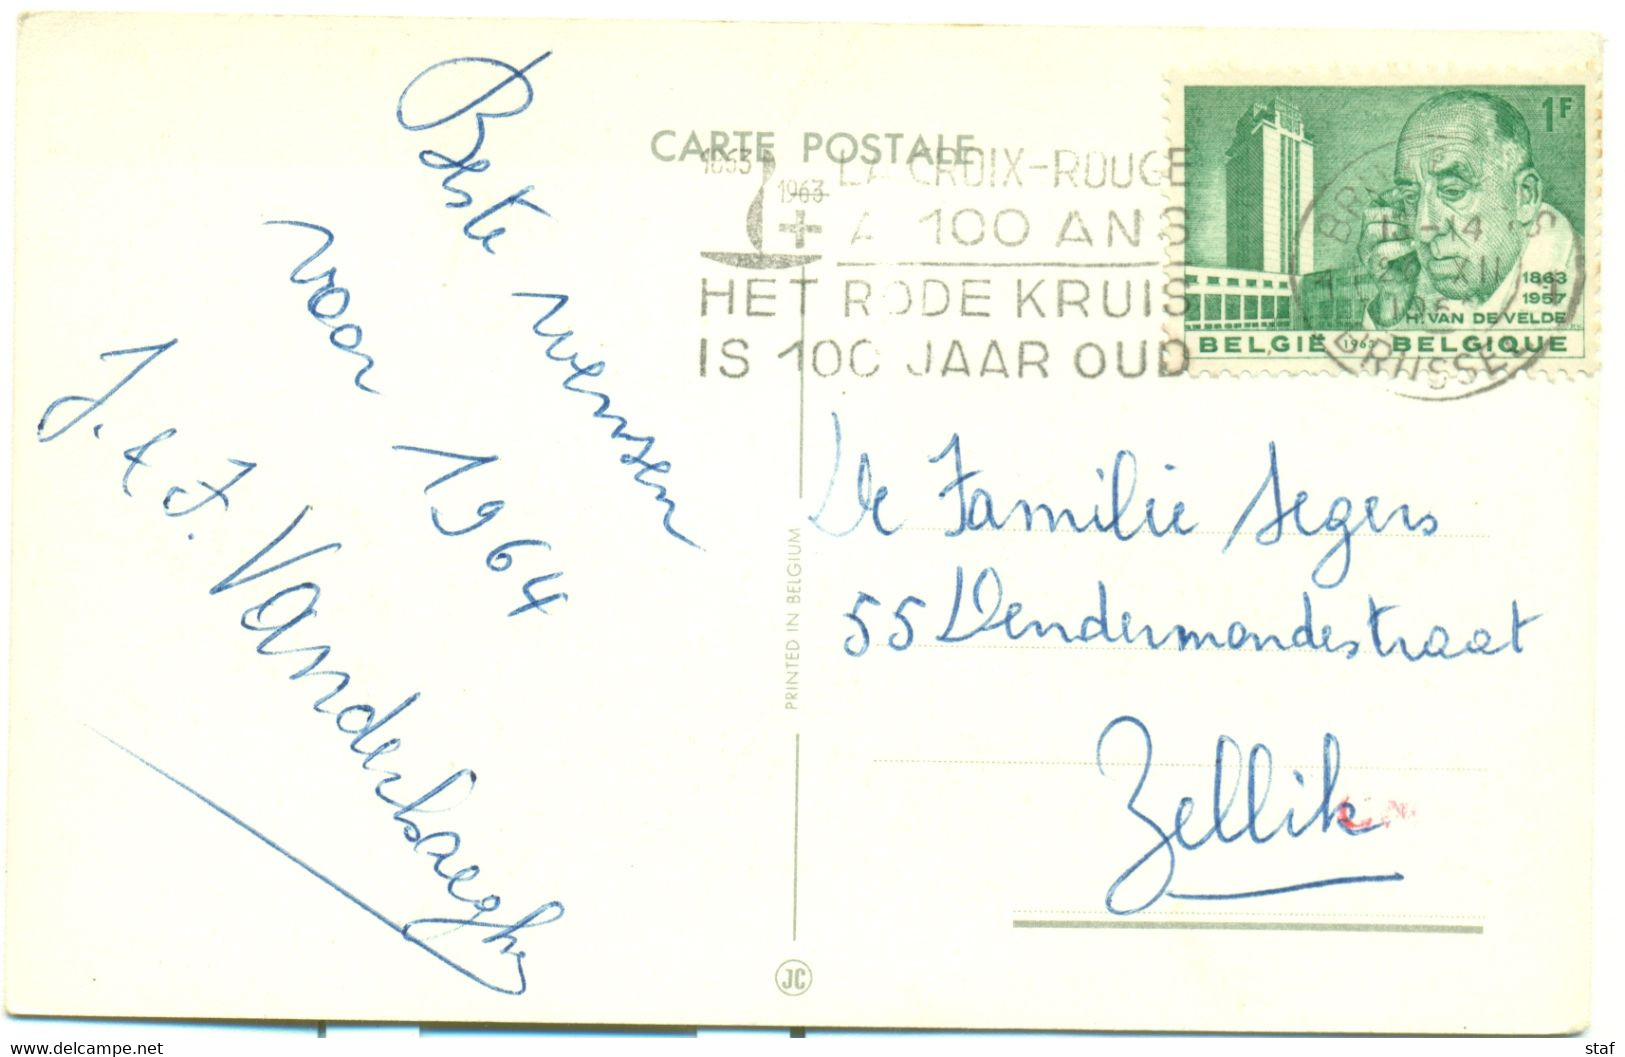 CARTE POSTALE
1863
1963
LA CROIX-ROUGE
A 100 ANS
HET RODE KRUIS
IS 100 JAAR OUD
1F
13-14
XII
1863
1957
H. VAN DE VELDE
BELGIË 1963 BELGIQUE
BRUSSEL
Beste wensen
voor 1964
J. & F. Vanderhaeghe
PRINTED IN BELGIUM
JC
De Familie Segers
55 Dendermondestraat
Zellik
www.delcampe.net
staf